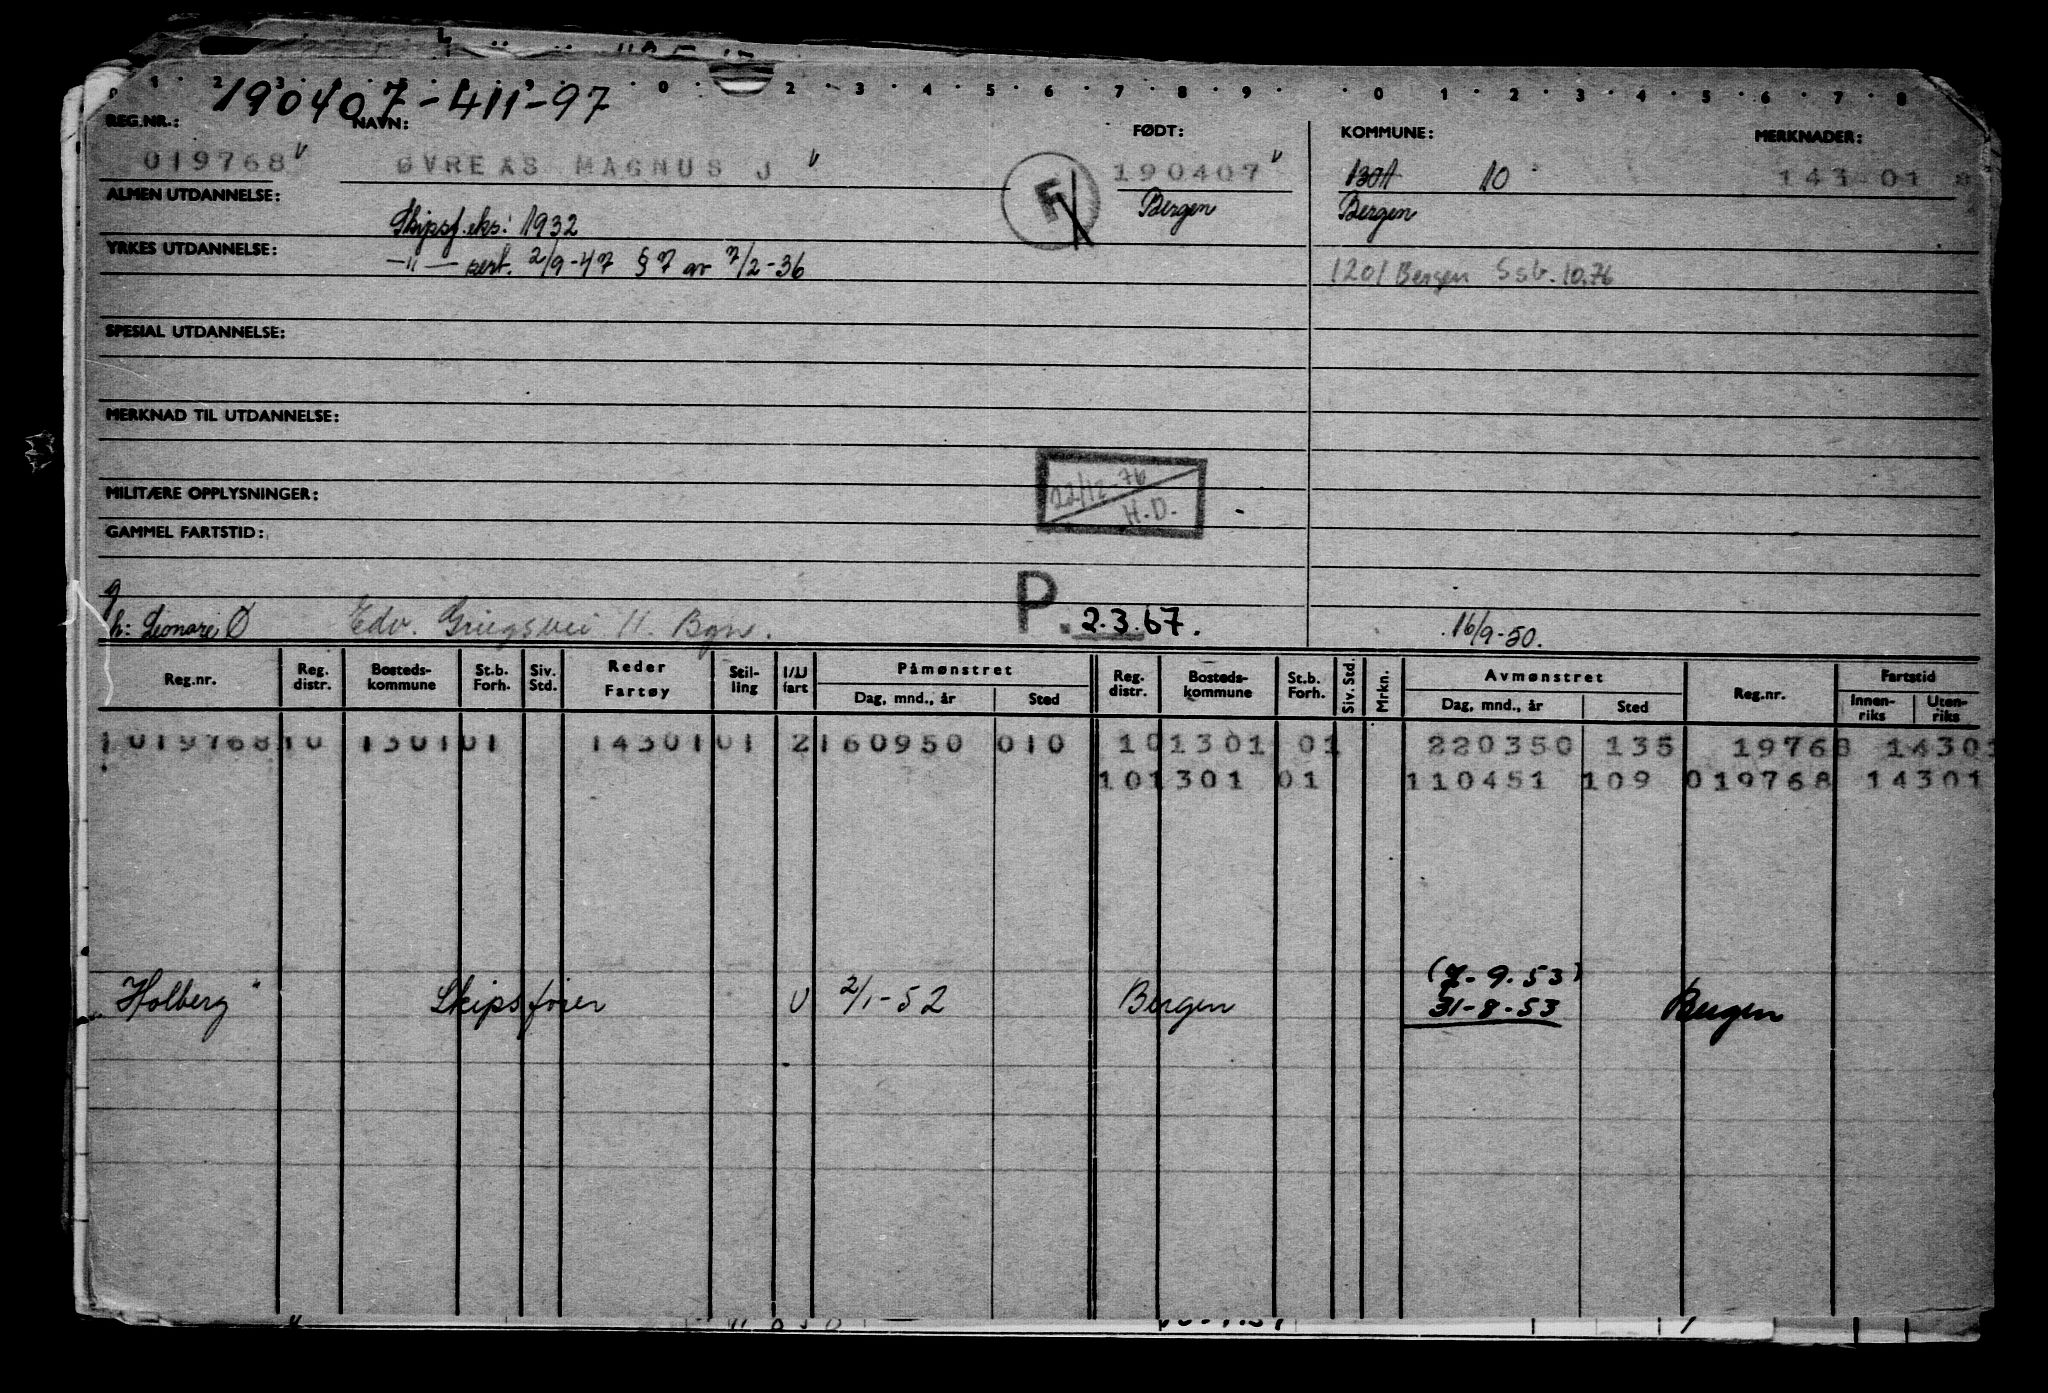 190407-411-97
REG.NR.: NAVN: FØDT: KOMMUNE: MERKNADER:
019768 ØVREÅS MAGNUS J F 190407 1301 10 143 01 8
ALMEN UTDANNELSE: Skipsf.eks: 1932 Bergen Bergen
YRKES UTDANNELSE: -"- sert. 2/9-47 § 7 av 7/2-36 1201 Bergen Ssb. 10.76
SPESIAL UTDANNELSE:
MERKNAD TIL UTDANNELSE:
22/12-76
MILITÆRE OPPLYSNINGER: H.D.
GAMMEL FARTSTID:
g
h: Leonore Ø Edv. Griegsvei 11. Bgn. P. 2.3.67. 16/9-50.
Reg.nr. Reg. distr. Bosteds-kommune St.b. Forh. Siv. Std. Reder Fartøy Stil-ling I/U fart Påmønstret Dag, mnd., år Sted Reg. distr. Bosteds-kommune St.b. Forh. Siv. Std. Mrkn. Avmønstret Dag, mnd., år Sted Reg.nr. Fartstid Innen-riks Uten-riks
1 019768 10 1301 01 14301 01 2 160950 010 10 1301 01 220350 135 19768 14301
10 1301 01 110451 109 019768 14301
(7-9.53)
Holberg" Skipsfører U 2/1-52 Bergen 31-8-53 Bergen